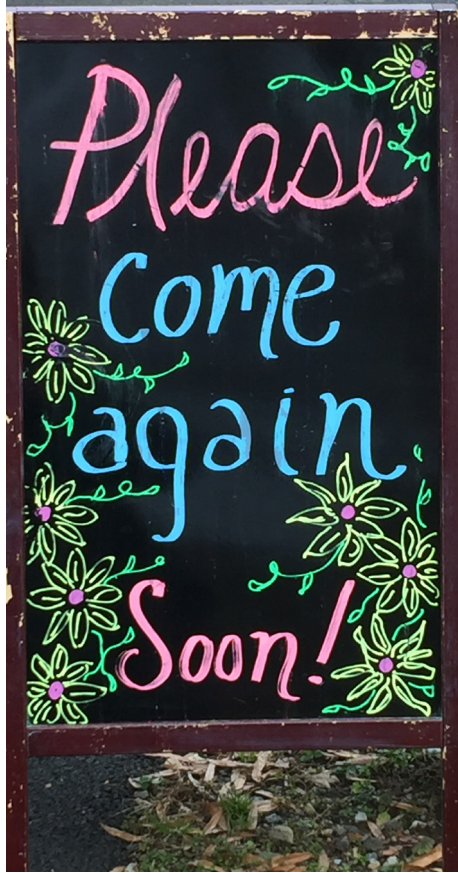 Please
come
again
Soon!